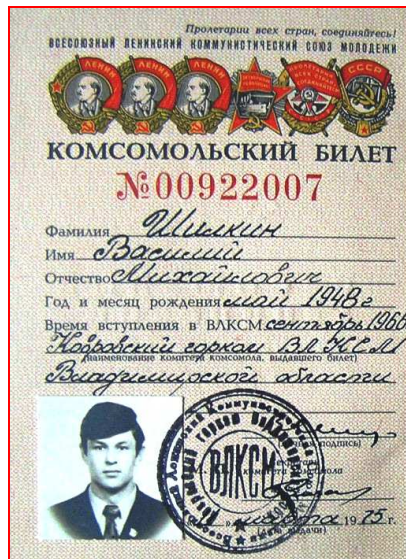 Пролетарии всех стран, соединяйтесь!
ВСЕСОЮЗНЫЙ ЛЕНИНСКИЙ КОММУНИСТИЧЕСКИЙ СОЮЗ МОЛОДЕЖИ
ЛЕНИН ЛЕНИН ЛЕНИН СССР
КОМСОМОЛЬСКИЙ БИЛЕТ
№00922007
Фамилия Шилкин
Имя Василий
Отчество Михайлович
Год и месяц рождения май 1948 г
Время вступления в ВЛКСМ сентябрь 1966
Ковровский горком ВЛКСМ
(наименование комитета комсомола, выдавшего билет)
Владимирской области
(личная подпись)
Секретарь
комитета комсомола
ВЛКСМ
марта 1975 г.
(дата выдачи)